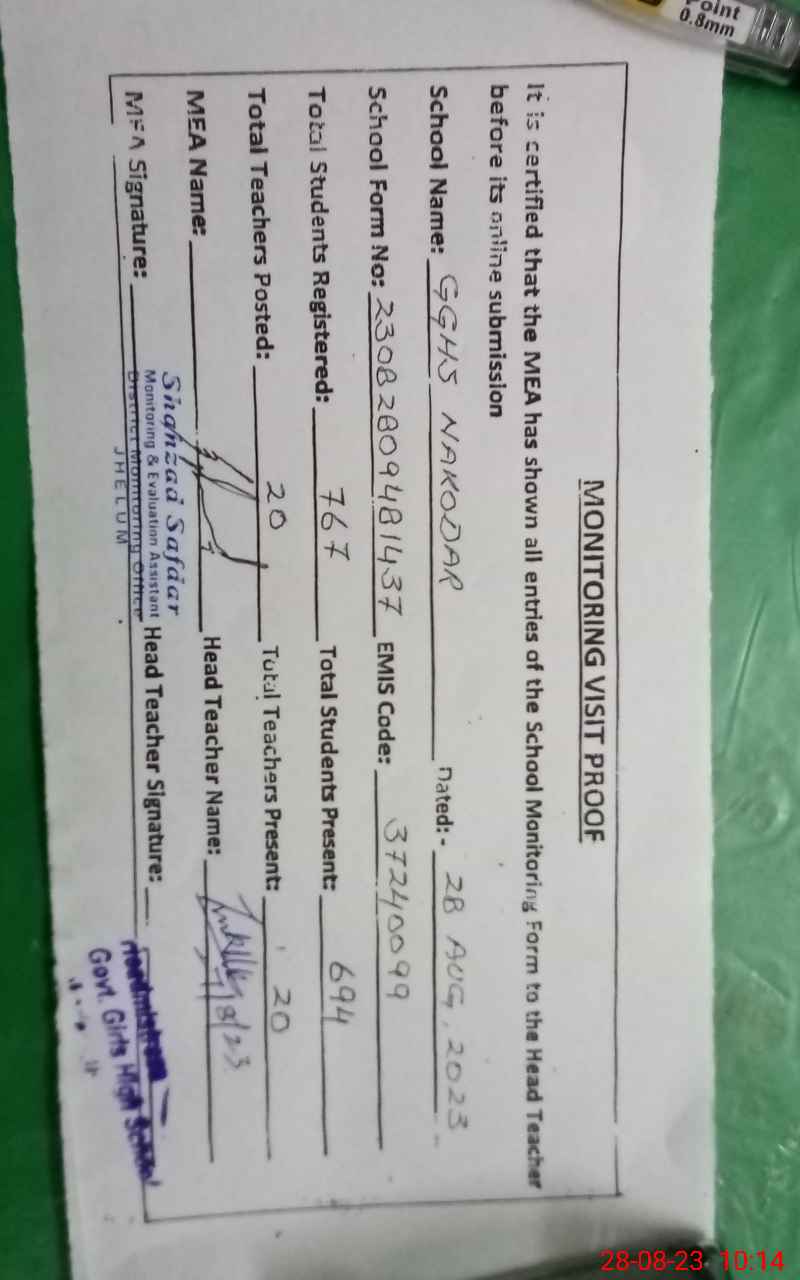 MONITORING VISIT PROOF
It is certified that the MEA has shown all entries of the School Monitoring Form to the Head Teacher
before its online submission
School Name: GGHS NAKODAR Dated:- 28 AUG, 2023
School Form No: 2308280948 1437 EMIS Code: 37240099
Total Students Registered: 767 Total Students Present: 694
Total Teachers Posted: 20 Total Teachers Present: 20
MEA Name: Head Teacher Name:
MEA Signature: Head Teacher Signature:
Shahzad Safdar
Monitoring & Evaluation Assistant
District Monitoring Office
JHELUM
Headmistress
Govt. Girls High School
Point
0.8mm
28-08-23 10:14